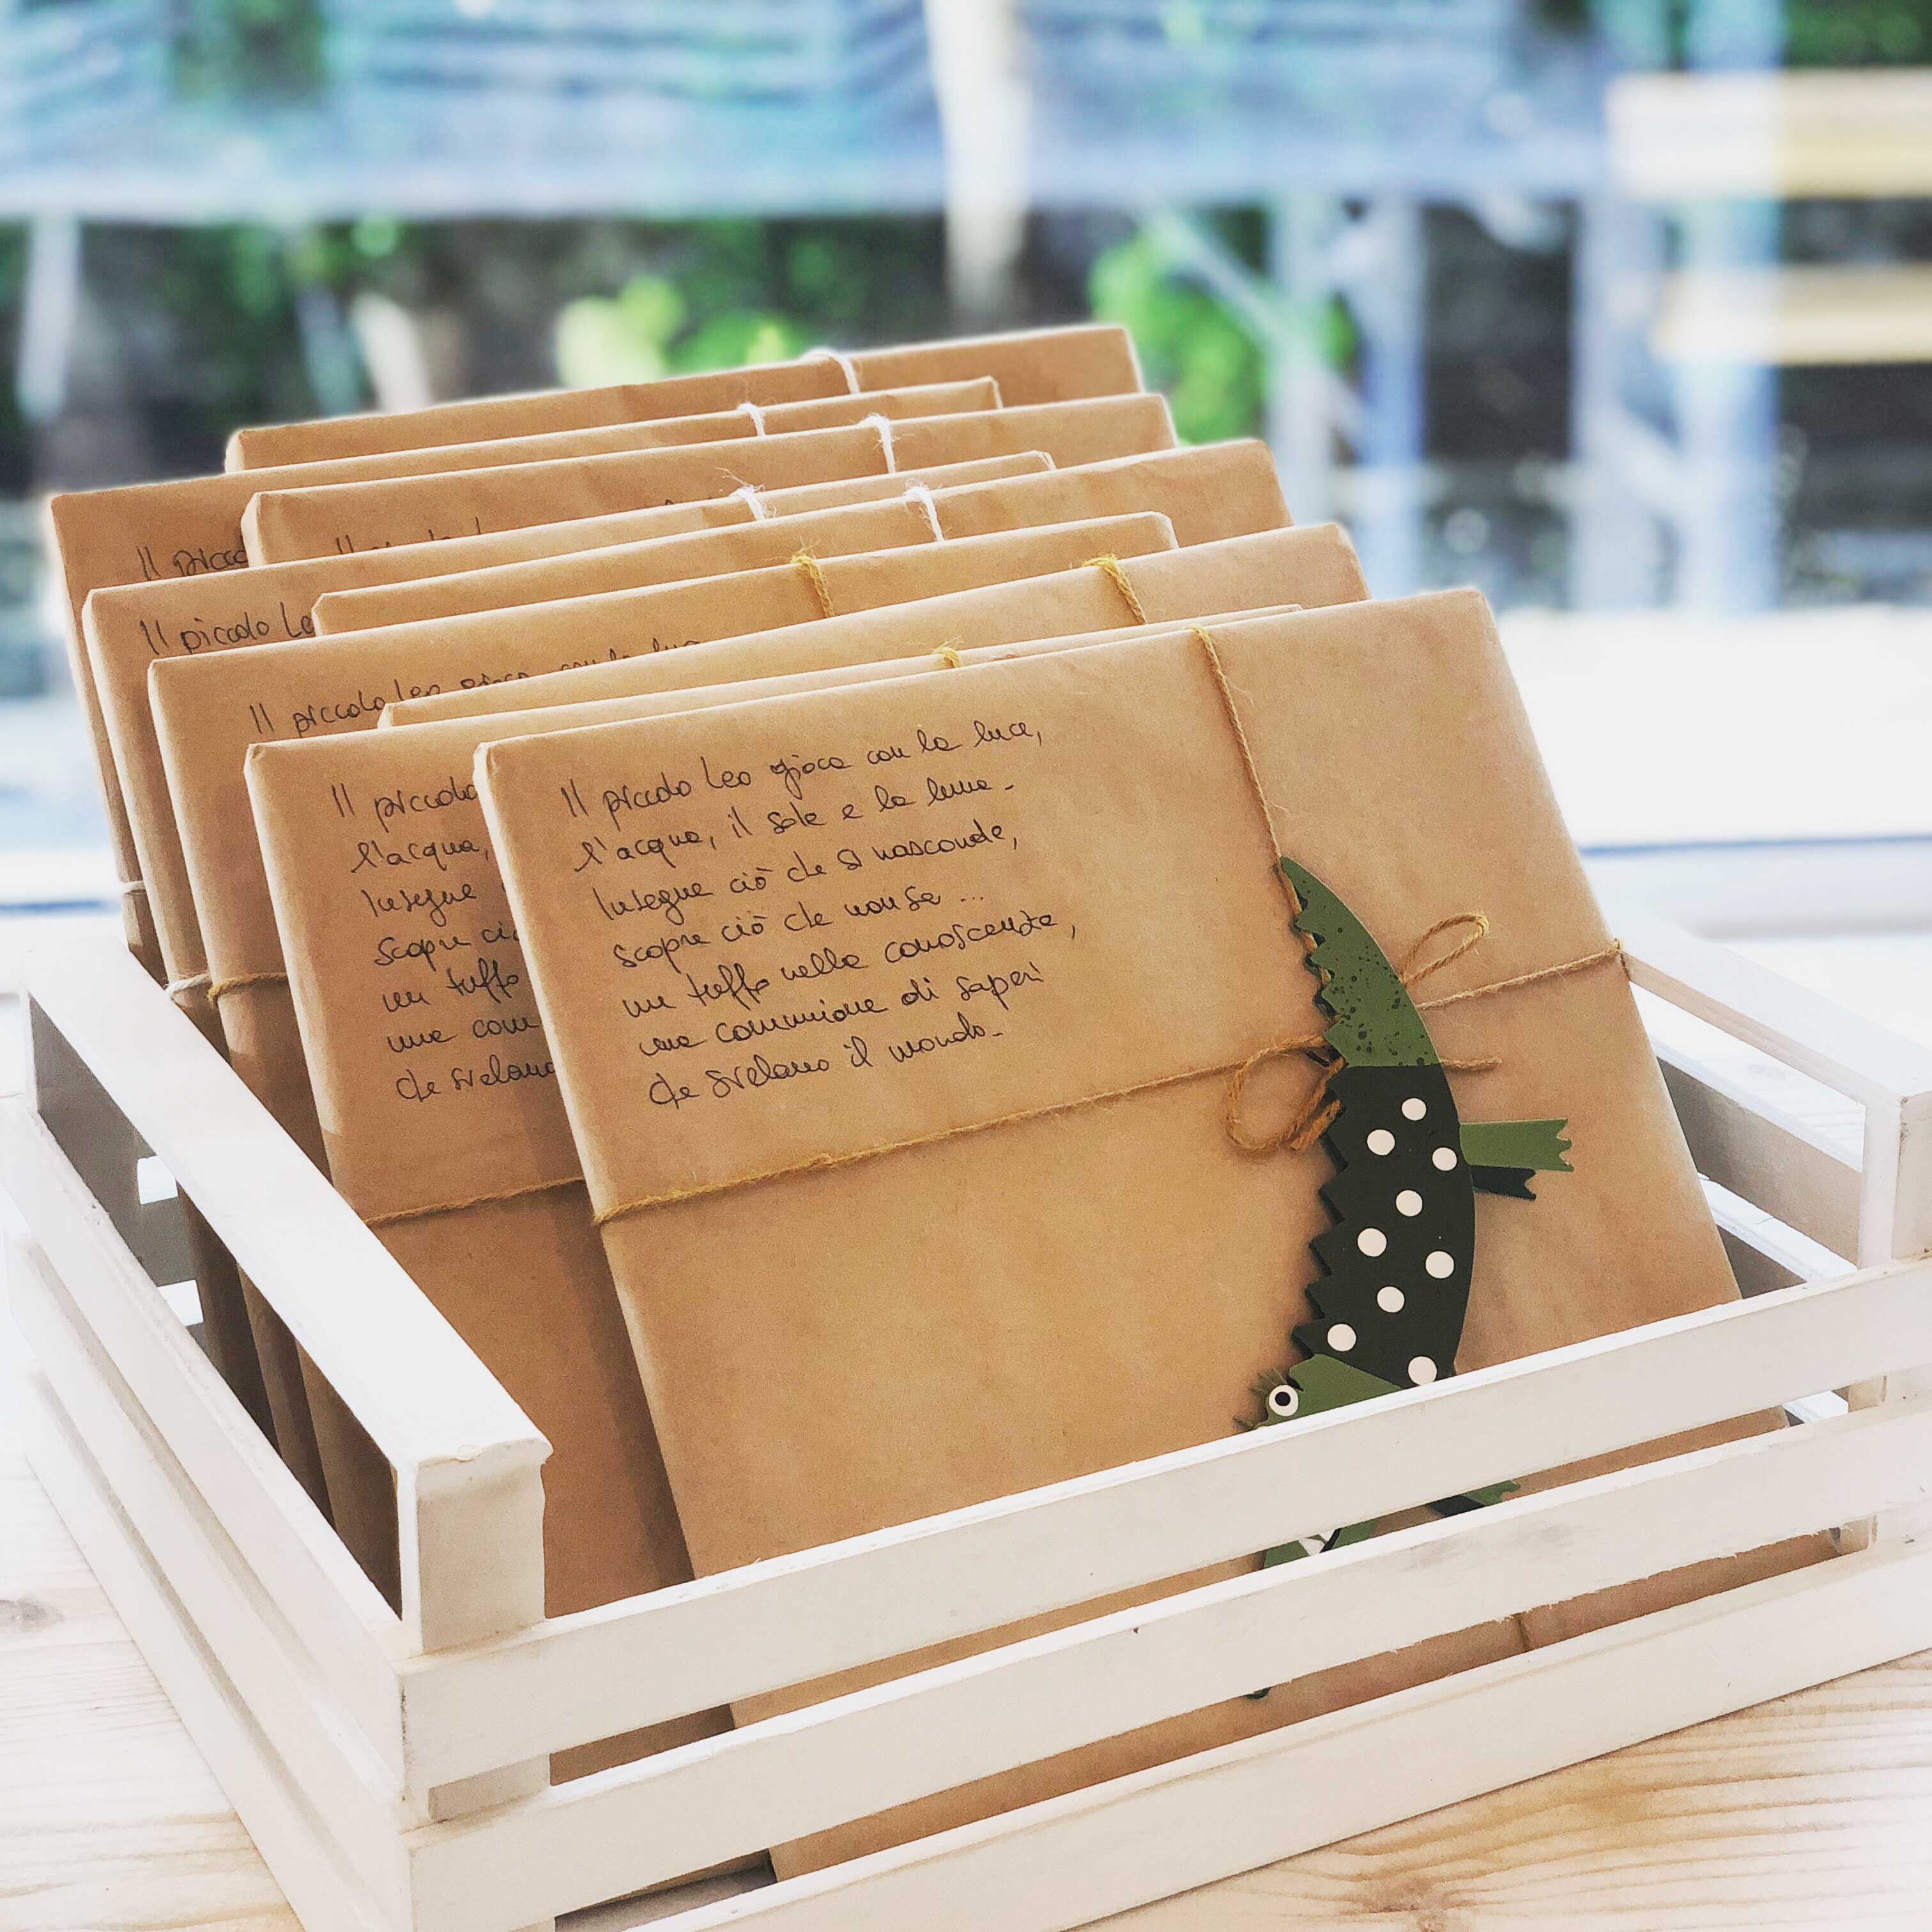 Il picco
Il piccolo Le
Il piccolo Leo gioca con la luce
Il piccolo
l'acqua,
Insegue
scopre ciò
un tuffo
una com
che svelano
Il piccolo Leo gioca con la luce,
l'acqua, il sole e la luna.
Insegue ciò che si nasconde,
scopre ciò che non sa ...
un tuffo nella conoscenza,
una comunione di saperi
che svelano il mondo.